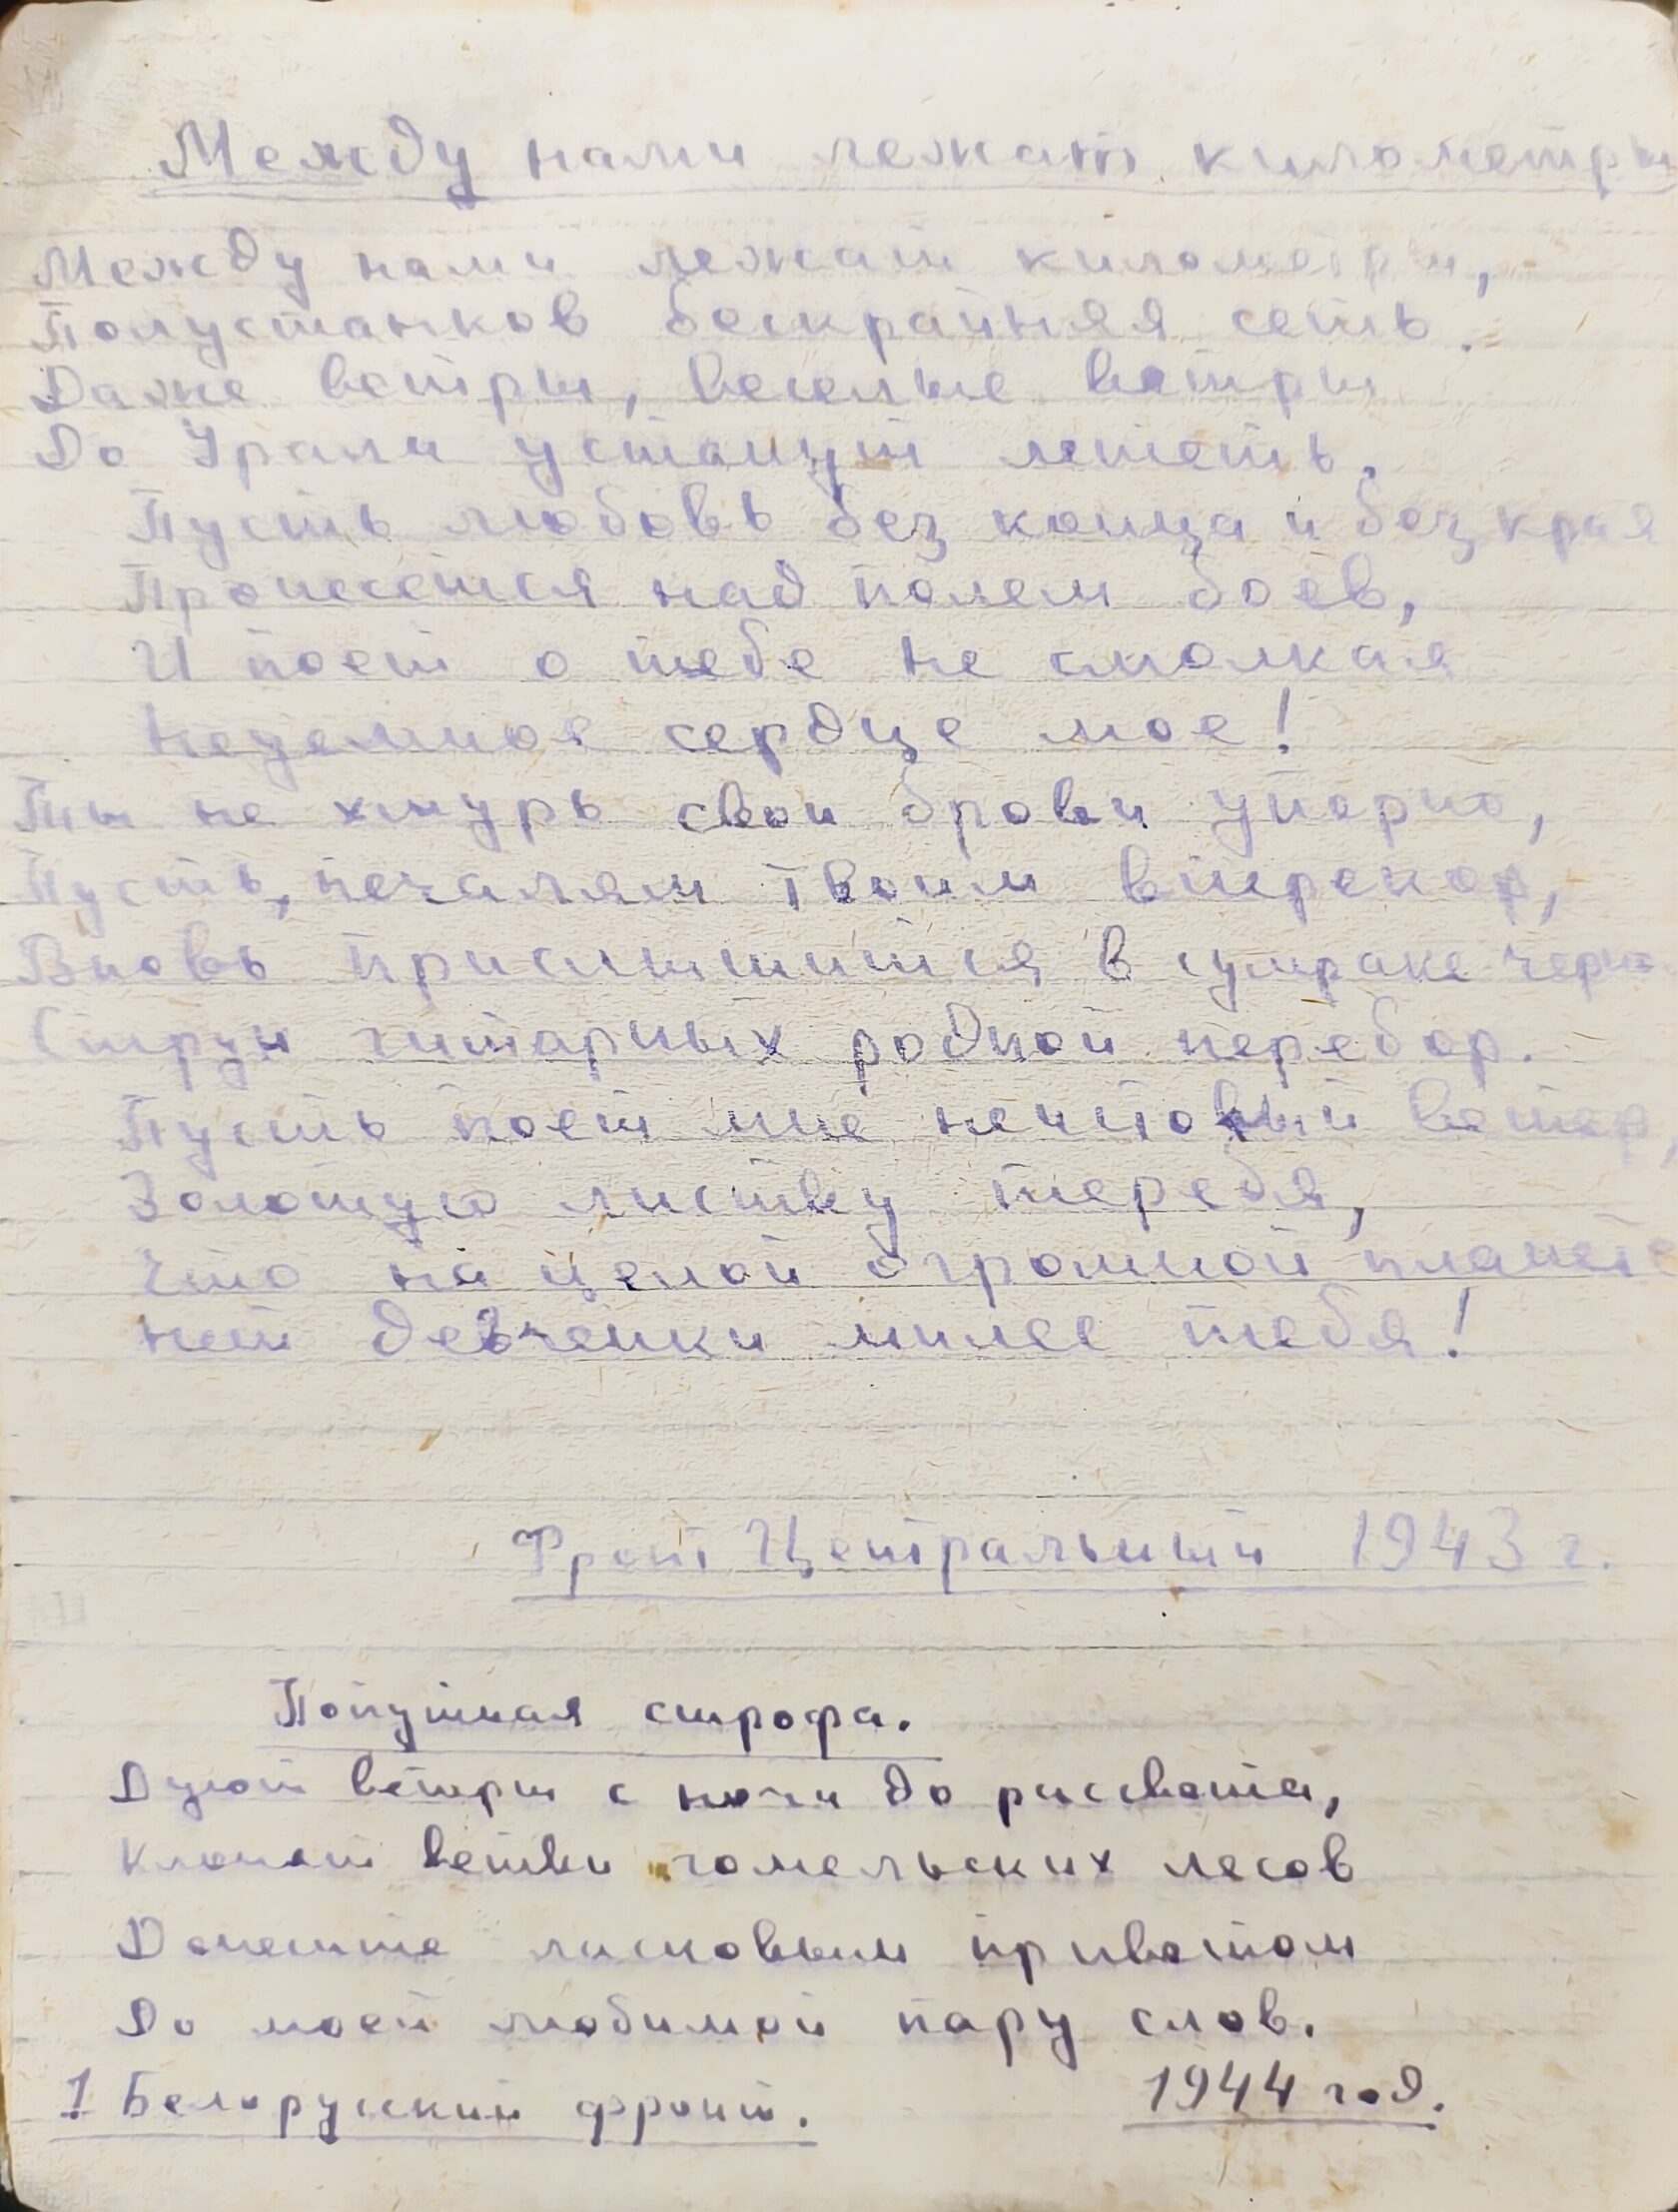 Между нами лежат километры
Между нами лежат километры,
Полустанков бескрайняя сеть.
Даже ветры, веселые ветры
До Урала устанут лететь.
Пусть любовь без конца и без края
Пронесется над полем боев,
И поет о тебе не смолкая
Неуемное сердце мое!
Ты не хмурь свои брови упорно,
Пусть, печалям твоим вперекор,
Вновь прислышится в сумраке черном
Струн гитарных родной перебор.
Пусть поет мне неистовый ветер,
Золотую листву теребя,
Что на целой огромной планете
Нет девчонки милее тебя!
Фронт Центральный 1943 г.
Попутная строфа.
Дуют ветры с ночи до рассвета,
Клонят ветви гомельских лесов
Донесите ласковым приветом
До моей любимой пару слов.
1 Белорусский фронт. 1944 год.